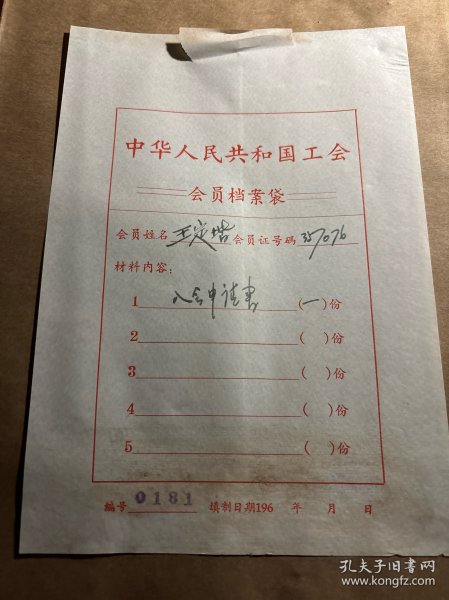 中华人民共和国工会
会员档案袋
会员姓名 王定增 会员证号码 357076
材料内容：
1 入会申请书 (一)份
2 ( )份
3 ( )份
4 ( )份
5 ( )份
编号 0181 填制日期196 年 月 日
孔夫子旧书网
www.kongfz.com